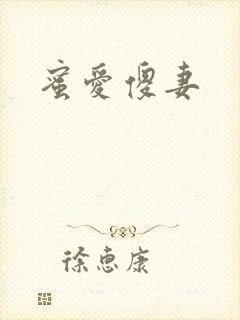 蜜愛傻妻
徐惠康